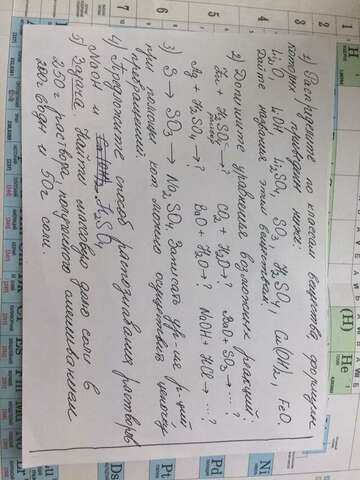 1) Распределите по классам вещества, формулы
которых приведены ниже:
Li₂O, LiOH, Li₂SO₄, SO₃, H₂SO₄, Cu(OH)₂, FeO.
Дайте названия этим веществам.
2) Допишите уравнения возможных реакций:
Zn + H₂SO₄ →? CO₂ + H₂O→? BaO + SO₃ → ...?
Ag + H₂SO₄ →? BaO + H₂O→? NaOH + HCl → ...?
3) S → SO₃ → Na₂SO₄. Записать ур-ия р-ций
при помощи кот. можно осуществить цепочку
превращений.
4) Предложите способ распознавания растворов
NaOH и H₂SO₄
5) Задача. Найти массовую долю соли в
250г раствора, полученного смешиванием
200г воды и 50г соли.
H
1
2
3
4
5
6
7
(H)
He
Ni
Pd
Pt
Ds